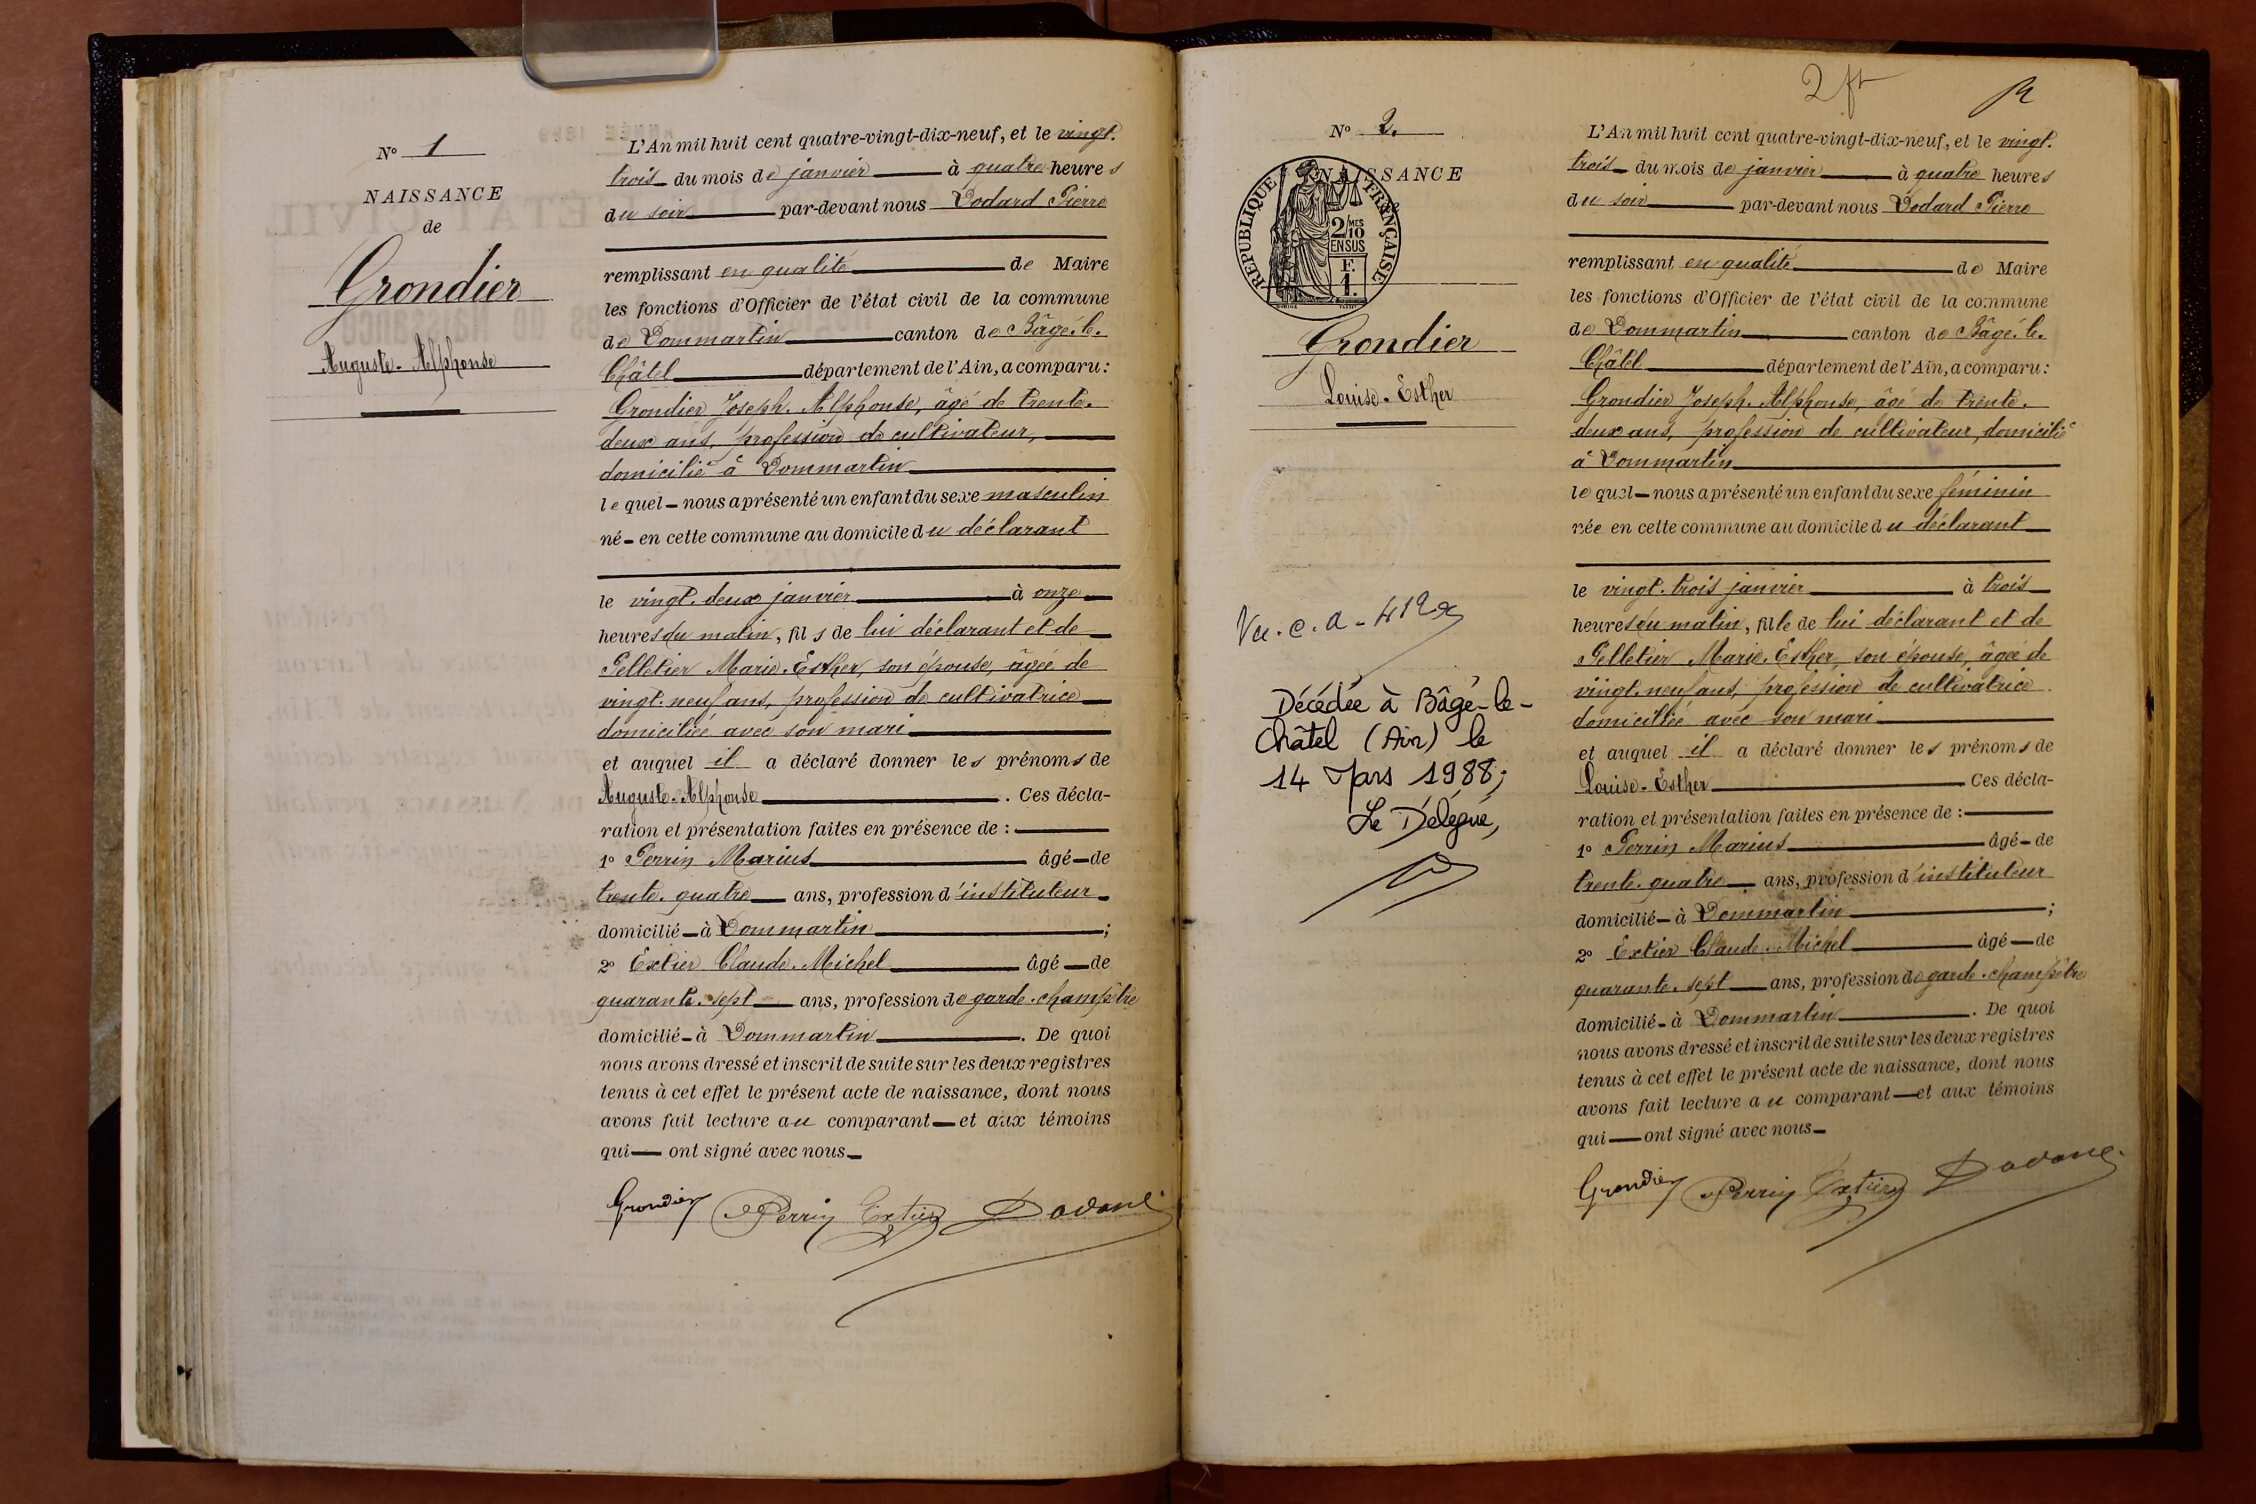 N° 1
NAISSANCE
de
Grondier
Auguste-Alphonse
L'An mil huit cent quatre-vingt-dix-neuf, et le vingt-
trois du mois de janvier à quatre heures
du soir par-devant nous Dodard Pierre
remplissant en qualité de Maire
les fonctions d'Officier de l'état civil de la commune
de Dommartin canton de Bâgé-le-
Châtel département de l'Ain, a comparu :
Grondier Joseph-Alphonse, âgé de trente-
deux ans, profession de cultivateur,
domicilié à Dommartin
lequel nous a présenté un enfant du sexe masculin
né en cette commune au domicile du déclarant
le vingt-deux janvier à onze
heures du matin, fils de lui déclarant et de
Pelletier Marie-Esther, son épouse, âgée de
vingt-neuf ans, profession de cultivatrice
domiciliée avec son mari
et auquel il a déclaré donner les prénoms de
Auguste-Alphonse. Ces décla-
ration et présentation faites en présence de :
1° Perrin Marius âgé de
trente-quatre ans, profession d'instituteur
domicilié à Dommartin ;
2° Extier Claude-Michel âgé de
quarante-sept ans, profession de garde-champêtre
domicilié à Dommartin. De quoi
nous avons dressé et inscrit de suite sur les deux registres
tenus à cet effet le présent acte de naissance, dont nous
avons fait lecture au comparant et aux témoins
qui ont signé avec nous
Grondier Perrin Extier Dodard
2 ft
N° 2.
NAISSANCE
RÉPUBLIQUE FRANÇAISE
2/10 MES
EN SUS
F.
1.
Grondier
Louise-Esther
Vu. C. A - 412
Décédée à Bâgé-le-
Châtel (Ain) le
14 Mars 1988 ;
Le Délégué,
L'An mil huit cent quatre-vingt-dix-neuf, et le vingt-
trois du mois de janvier à quatre heures
du soir par-devant nous Dodard Pierre
remplissant en qualité de Maire
les fonctions d'Officier de l'état civil de la commune
de Dommartin canton de Bâgé-le-
Châtel département de l'Ain, a comparu :
Grondier Joseph-Alphonse, âgé de trente-
deux ans, profession de cultivateur, domicilié
à Dommartin
lequel nous a présenté un enfant du sexe féminin
née en cette commune au domicile du déclarant
le vingt-trois janvier à trois
heures du matin, fille de lui déclarant et de
Pelletier Marie-Esther, son épouse, âgée de
vingt-neuf ans, profession de cultivatrice
domiciliée avec son mari
et auquel il a déclaré donner les prénoms de
Louise-Esther Ces décla-
ration et présentation faites en présence de :
1° Perrin Marius âgé de
trente-quatre ans, profession d'instituteur
domicilié à Dommartin ;
2° Extier Claude-Michel âgé de
quarante-sept ans, profession de garde-champêtre
domicilié à Dommartin. De quoi
nous avons dressé et inscrit de suite sur les deux registres
tenus à cet effet le présent acte de naissance, dont nous
avons fait lecture au comparant et aux témoins
qui ont signé avec nous
Grondier Perrin Extier Dodard